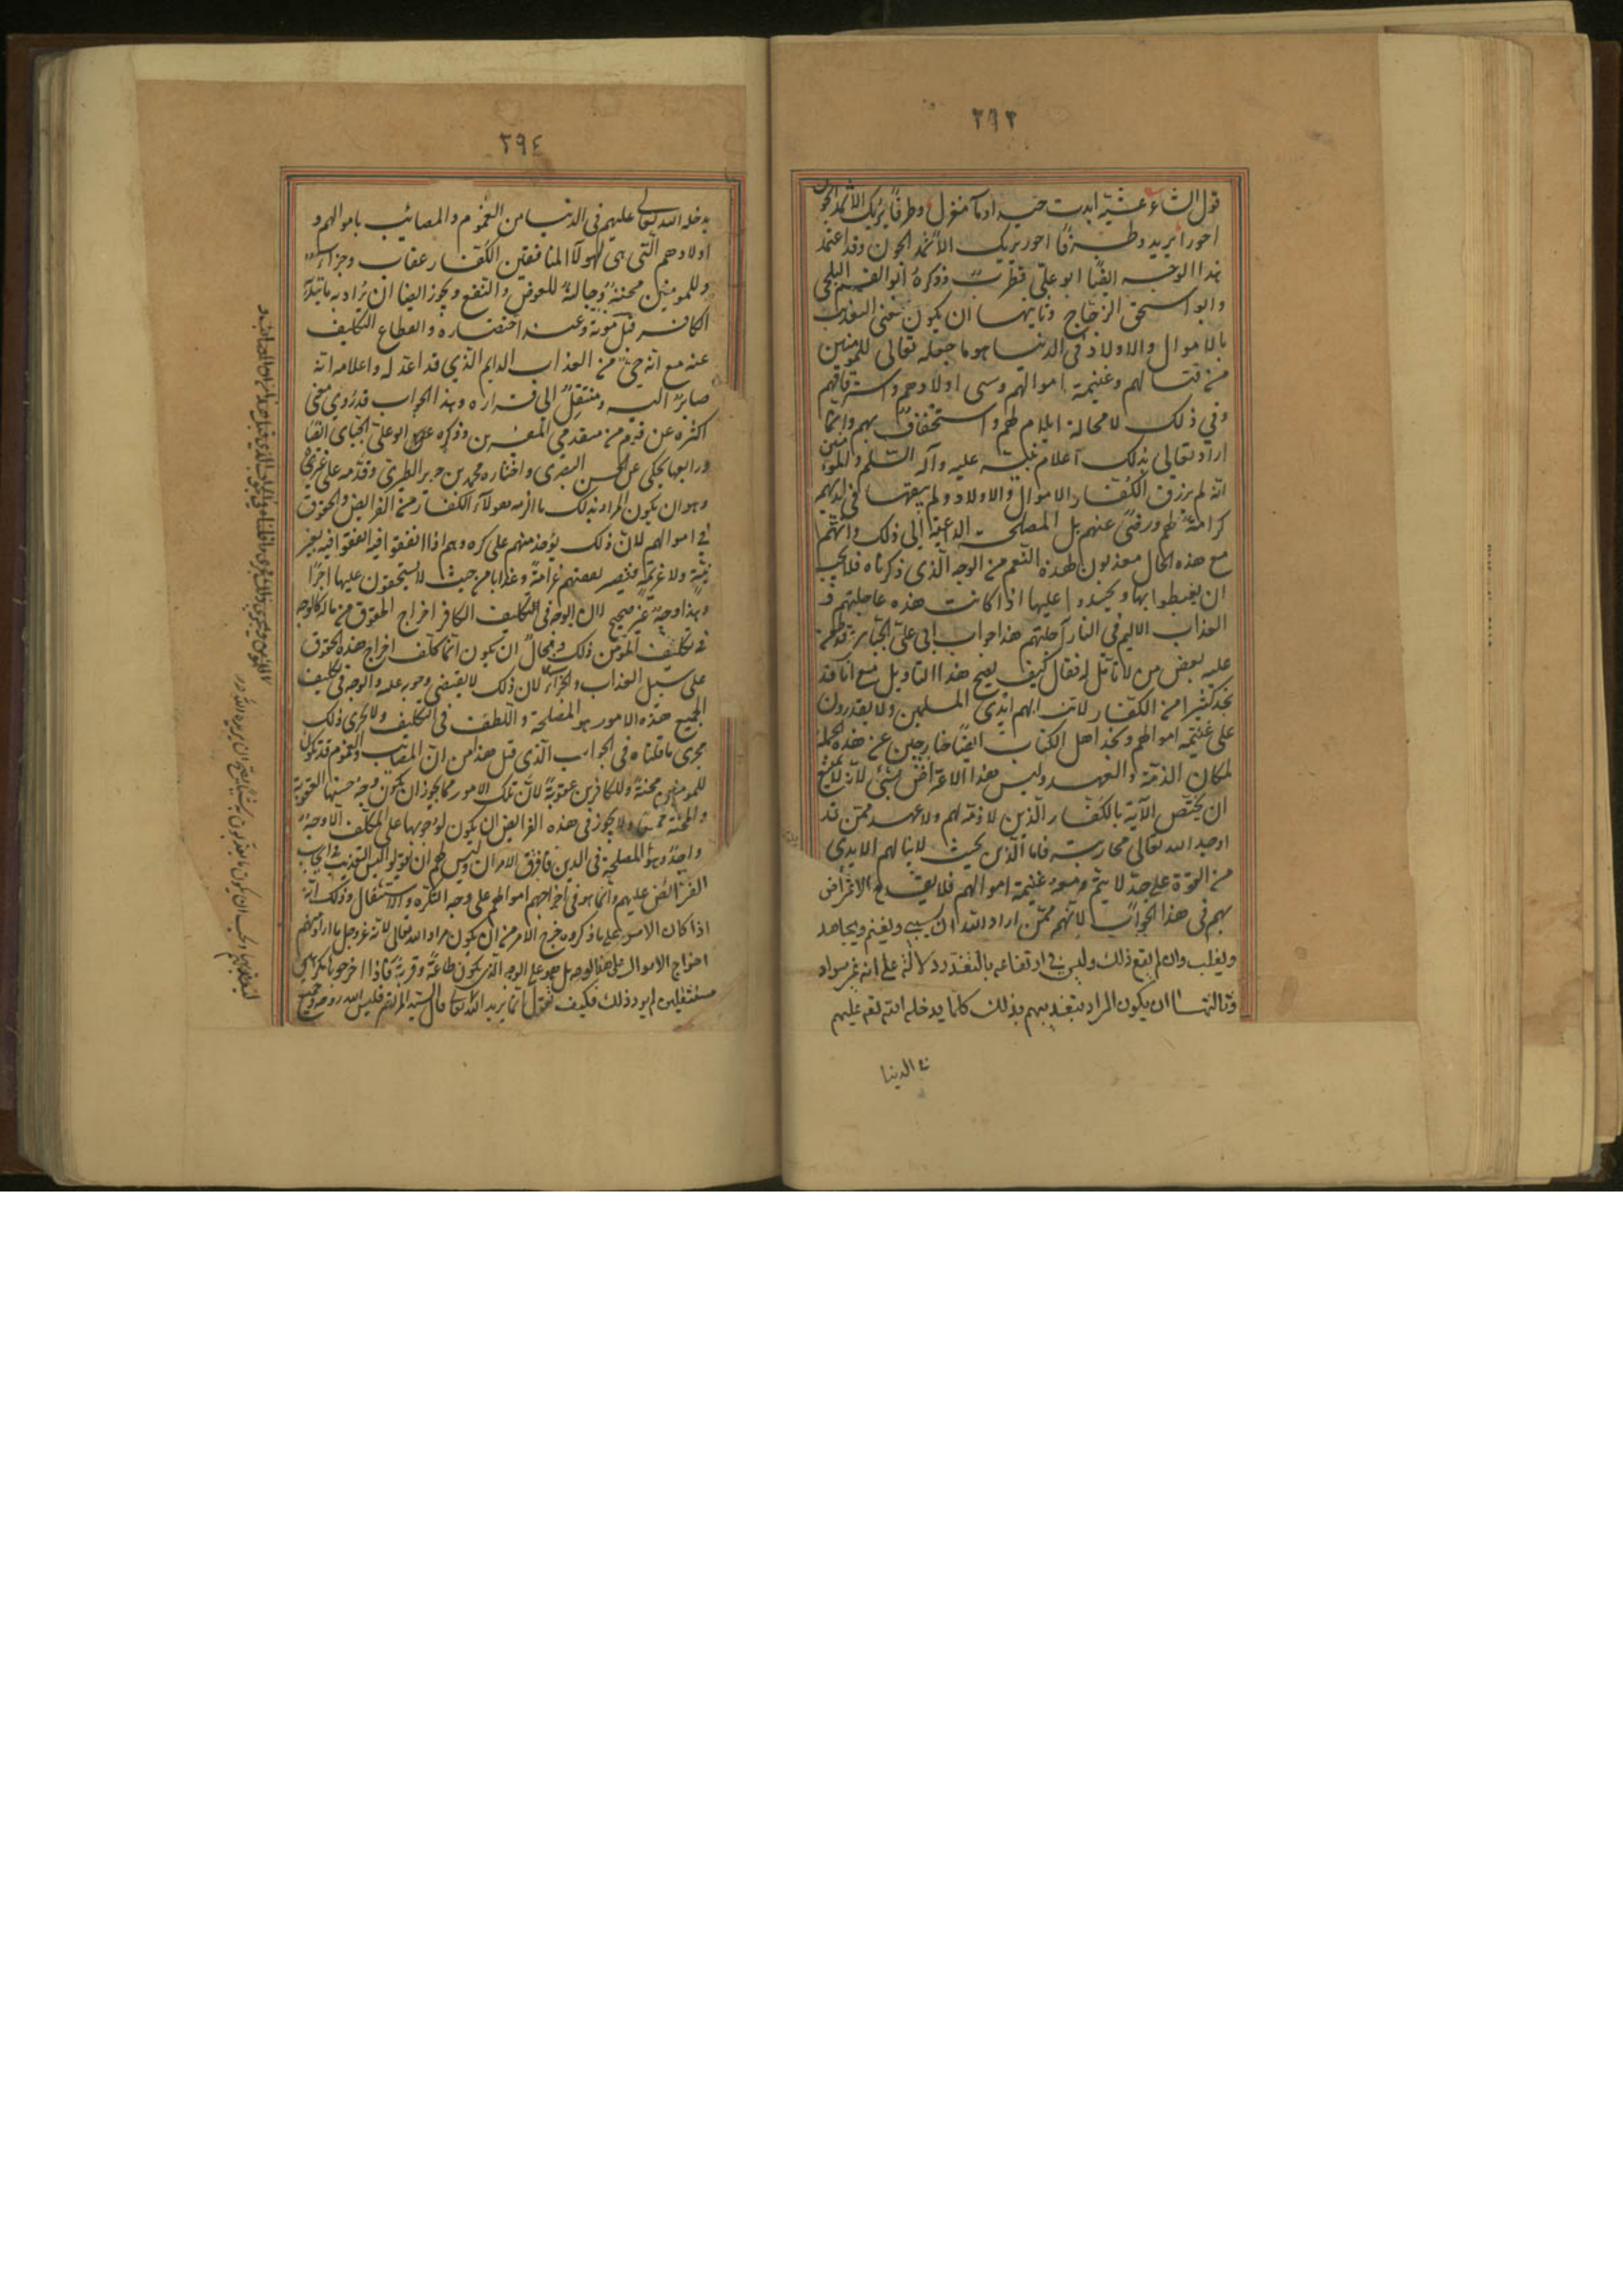 ٢٩٣
قول الشاعر عشية ابدت جيد ادماء مغزل وطرفا يريك الاثمد الجون
احورا يريد وطرفا احور يريك الاثمد الجون وقد اعتمد
هذا الوجه ايضا ابو علي قطرب وذكره ابو القسم البلخي
وابو اسحق الزجاج وثانيها ان يكون معنى التعذيب
بالاموال والاولاد في الدنيا هو ما جعله تعالى للمؤمنين
من قتالهم وغنيمة اموالهم وسبي اولادهم واسترقاقهم
وفي ذلك لا محالة ايلام لهم واستخفاف بهم وانما
اراد تعالى بذلك اعلام نبيه عليه وآله السلم والمؤمنين
انه لم يرزق الكفار الاموال والاولاد ولم يبقها في ايديهم
كرامة لهم ورضى عنهم بل المصلحة الداعية الى ذلك وانهم
مع هذه الحال معذبون بهذه النعم من الوجه الذي ذكرناه فلا يجب
ان يغبطوا بها ويحسدوا عليها اذا كانت هذه عاجلتهم و
العذاب الاليم في النار آجلتهم هذا جواب ابي علي الجبائي وقد طعن
عليه بعض من لا تأمل له فقال كيف يصح هذا التاويل مع انا قد
نجد كثيرا من الكفار لا تنالهم ايدي المسلمين ولا يقدرون
على غنيمة اموالهم ونجد اهل الكتاب ايضا خارجين عن هذه الجملة
لمكان الذمة والعهد وليس هذا الاعتراض بشئ لانه لا يمتنع
ان يختص الآية بالكفار الذين لا ذمة لهم ولا عهد ممن قد
اوجب الله تعالى محاربته فاما الذين بحيث لا ينالهم الايدي
من القوة على حد لا يتم معه غنيمة اموالهم فلا يقدح الاعتراض
بهم في هذا الجواب لانهم ممن اراد الله ان يسبى ويغنم ويجاهد
ويغلب وان لم يقع ذلك وليس في ارتفاعه بالتعذر دلالة على انه غير مراد
وثالثها ان يكون المراد بتعذيبهم بذلك كلما يدخله الله تع عليهم
في الدنيا
٢٩٤
يدخله الله تعالى عليهم في الدنيا من الغموم والمصائب باموالهم و
اولادهم التي هي لهولآ المنافقين الكفار عقاب وجزاء
وللمومنين محنة وجالبة للعوض والنفع ويجوز ايضا ان يراد به ما ينذر
الكافر قبل موته وعند احتضاره وانقطاع التكليف
عنه مع انه حي من العذاب الدايم الذي قد اعد له واعلامه انه
صائر اليه ومنتقل الى قراره وهذا الجواب قد روي معنى
اكثره عن قوم من متقدمي المفسرين وذكره ابو علي الجبائي ايضا
ورابعها يحكى عن الحسن البصري واختاره محمد بن جرير الطبري وقدمه على غيره
وهو ان يكون المراد بذلك ما الزمه هولآء الكفار من الفرائض والحقوق
في اموالهم لان ذلك يؤخذ منهم على كره وهم اذا انفقوا فيه انفقوا فيه بغير
نية ولا عزيمة فتصير نفقتهم غرامة وعذابا من حيث لا يستحقون عليها اجرا
وهذا وجه غير صحيح لان الوجه في تكليف الكافر اخراج الحقوق من ماله كالوجه
في تكليف المؤمن ذلك ومحال ان يكون انما كلف اخراج هذه الحقوق
على سبيل العذاب والجزاء لان ذلك لا يقتضي وجوبه عليه والوجه في تكليف
الجميع هذه الامور هو المصلحة واللطف في التكليف ولا يجرى ذلك
مجرى ما قلناه في الجواب الذي قبل هذا من ان المصائب والغموم قد تكون
للمومنين محنة وللكافرين عقوبة لان تلك الامور مما يجوز ان يكون وجه حسنها العقوبة
والمحنة جميعا ولا يجوز في هذه الفرائض ان يكون لوجوبها على المكلف الا وجه
واحد وهو المصلحة في الدين فافترق الامران وليس لهم ان يقولوا ليس التعذيب في ايجاب
الفرائض عليهم وانما هو في اخراجهم اموالهم على وجه التكره والاستثقال وذلك انه
اذا كان الامر على ما ذكروه خرج الامر من ان يكون مراد الله تعالى لانه عز وجل ما اراد منهم
اخراج الاموال على هذا الوجه بل على الوجه الذي يكون طاعة وقربة فاذا اخرجوها متكرهين
مستثقلين لم يرد ذلك فكيف يقول انما يريد الله تعالى قال السيد المرتضى قدس الله روحه وجميع